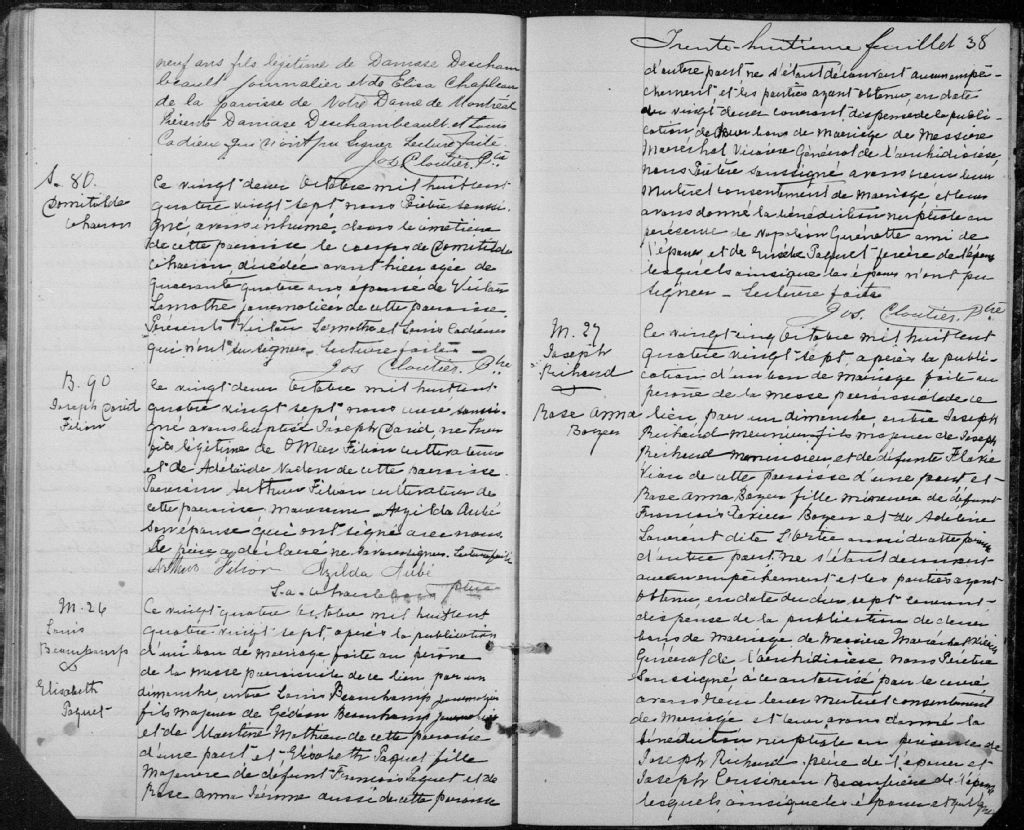 neuf ans fils légitime de Damase Descham
beault journalier et de Elisa Chapleau
de la paroisse de Notre Dame de Montréal
Présents Damase Deschambeault et Louis
Cadieux qui n'ont pu signer Lecture faite
Jos Cloutier, Ptre
S. 80.
Domitilde
Charon
Ce vingt deux Octobre mil huit cent
quatre vingt sept nous Prêtre soussi-
gné, avons inhumé, dans le cimetière
de cette paroisse le corps de Domitilde
Charon, décédée avant hier agée de
quarante quatre ans épouse de
Lamothe journalier de cette paroisse.
Présents Lamothe et Louis Cadieux
qui n'ont su signer. Lecture faite
Jos Cloutier, Ptre
B. 90
Joseph David
Filion
Ce vingt deux Octobre mil huit cent
quatre vingt sept nous curé soussi-
gné avons baptisé Joseph David, né hier
fils légitime de Filion cultivateur
et de Adelaide Nadon de cette paroisse.
Parrain Arthur Filion cultivateur de
cette paroisse marraine Azilda Aubé
son épouse qui ont signé avec nous.
Le père a déclaré ne savoir signer. Lecture faite
Arthur Filion Azilda Aubé
ptre
M. 26
Louis
Beauchamp
&
Elisabeth
Paquet
Ce vingt quatre Octobre mil huit cent
quatre vingt sept après la publication
d'un ban de mariage faite au prône
de la messe paroissiale de ce lieu par un
dimanche, entre Louis Beauchamp journalier
fils majeur de Gédéon Beauchamp journalier
et de Mathieu de cette paroisse
d'une part et Elisabeth Paquet fille
majeure de defunt François Paquet et de
Rose Anna Jérome aussi de cette paroisse
Trente-huitième feuillet 38
d'autre part ne s'étant découvert aucun empê-
chement et les parties ayant obtenu, en date
du vingt deux courant dispense de la publi-
cation de deux bans de mariage de Messire
Maréchal Vicaire Général de l'archidiocèse,
nous Prêtre soussigné avons reçu leur
mutuel consentement de mariage et leur
avons donné la bénédiction nuptiale en
présence de Napoléon Guénette ami de
l'époux et de Paquet frère de l'épouse
lesquels ainsi que les époux n'ont pu
signer - Lecture faite
Jos. Cloutier, Ptre
M. 27
Joseph
Richaud
&
Rose Anna
Boyer
Ce vingt cinq Octobre mil huit cent
quatre vingt sept après la publi-
cation d'un ban de mariage faite au
prône de la messe paroissiale de ce
lieu, par un dimanche, entre Joseph
Richaud menuisier fils majeur de Joseph
Richaud menuisier et de défunte Flavie
Viau de cette paroisse d'une part et
Rose Anna Boyer fille mineure de défunt
François Xavier Boyer et de Adeline
Laurent dite Lortie aussi de cette paroisse
d'autre part, ne s'étant découvert
aucun empêchement et les parties ayant
obtenu, en date du dix sept courant
dispense de la publication de deux
bans de mariage de Messire Maréchal Vicaire
Général de l'archidiocèse nous Prêtre
soussigné à ce autorisé par le curé
avons reçu leur mutuel consentement
de mariage et leur avons donné la
bénédiction nuptiale en présence de
Joseph Richaud père de l'époux et
Joseph Beaufrère de l'épouse
lesquels, ainsi que les époux ont